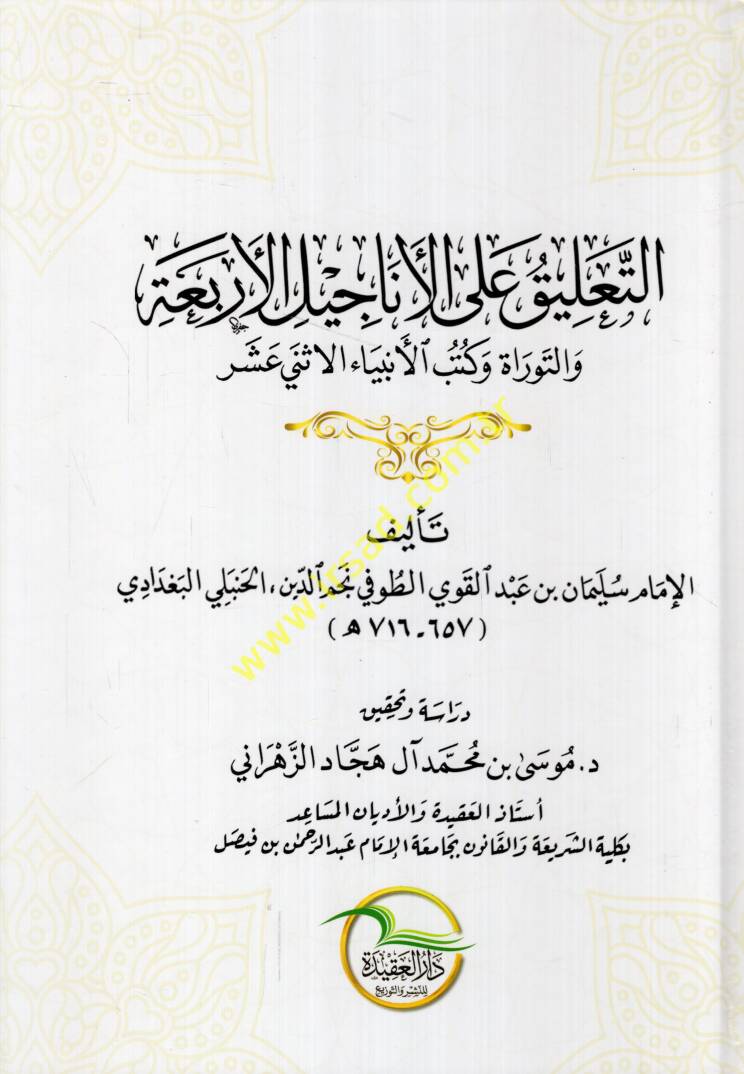 التَّعَلِيقُ عَلى الأَنَاجِيْلِ الأَرْبَعَةِ
وَالتَورَاة وَكُتُب الأَنبيَاء الاثنَي عَشَر
تَأليف
الإمَام سُليمَان بن عَبْد القَوي الطُوفي نَجَم الدّين ، الحَنبَلي البَغدَادِي
(٦٥٧ ـ ٧١٦ هـ)
دراسة وتحقيق
د. مُوسَىٰ بن مُحَمَّد آل هَجَّاد الزَّهْرَاني
أستاذ العَقيدة وَالأديان المسَاعِد
بكلية الشريعة وَالقَانون بجَامعة الإمَام عَبدالرحمٰن بن فيصَل
دَارُ العَقِيْدَة
للنشر والتوزيع
www.irsad.com.tr